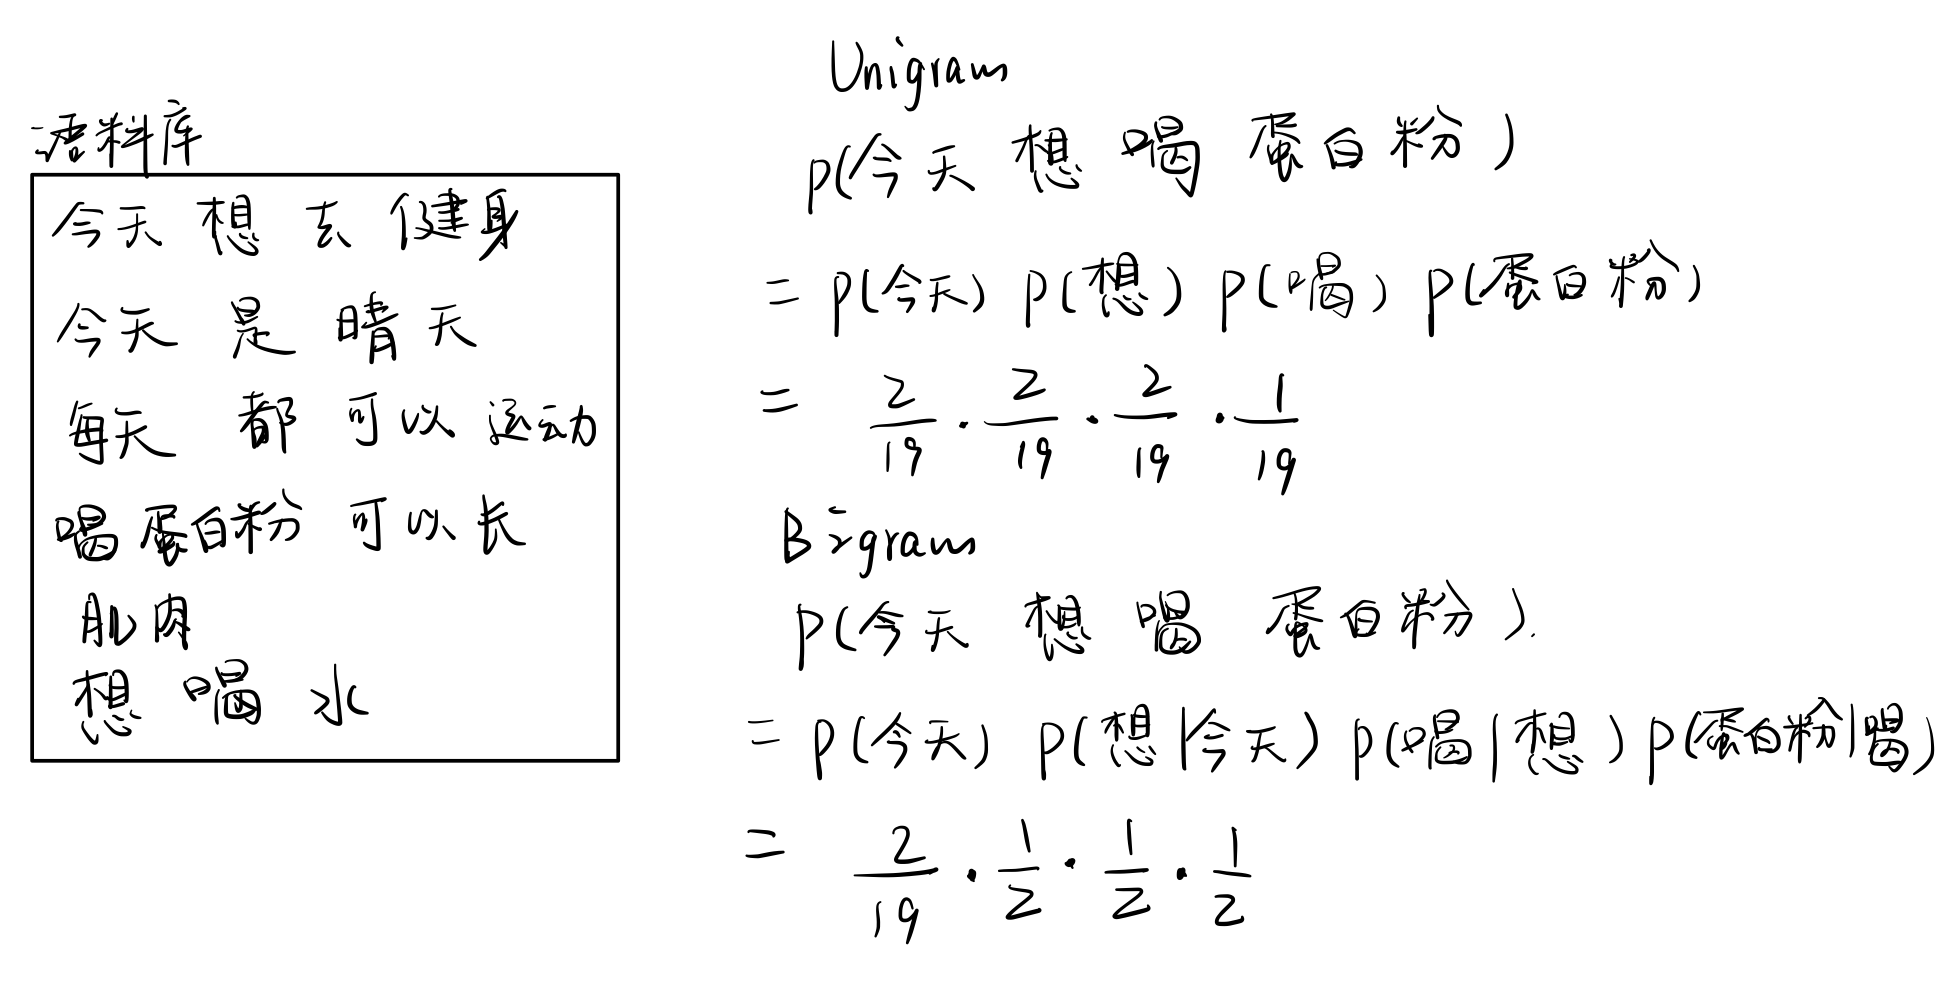 语料库
今天 想 去 健身
今天 是 晴天
每天 都 可以 运动
喝 蛋白粉 可以 长
肌肉
想 喝 水
Unigram
p(今天 想 喝 蛋白粉)
= p(今天) p(想) p(喝) p(蛋白粉)
= 2/19 · 2/19 · 2/19 · 1/19
Bigram
p(今天 想 喝 蛋白粉).
= p(今天) p(想|今天) p(喝|想) p(蛋白粉|喝)
= 2/19 · 1/2 · 1/2 · 1/2